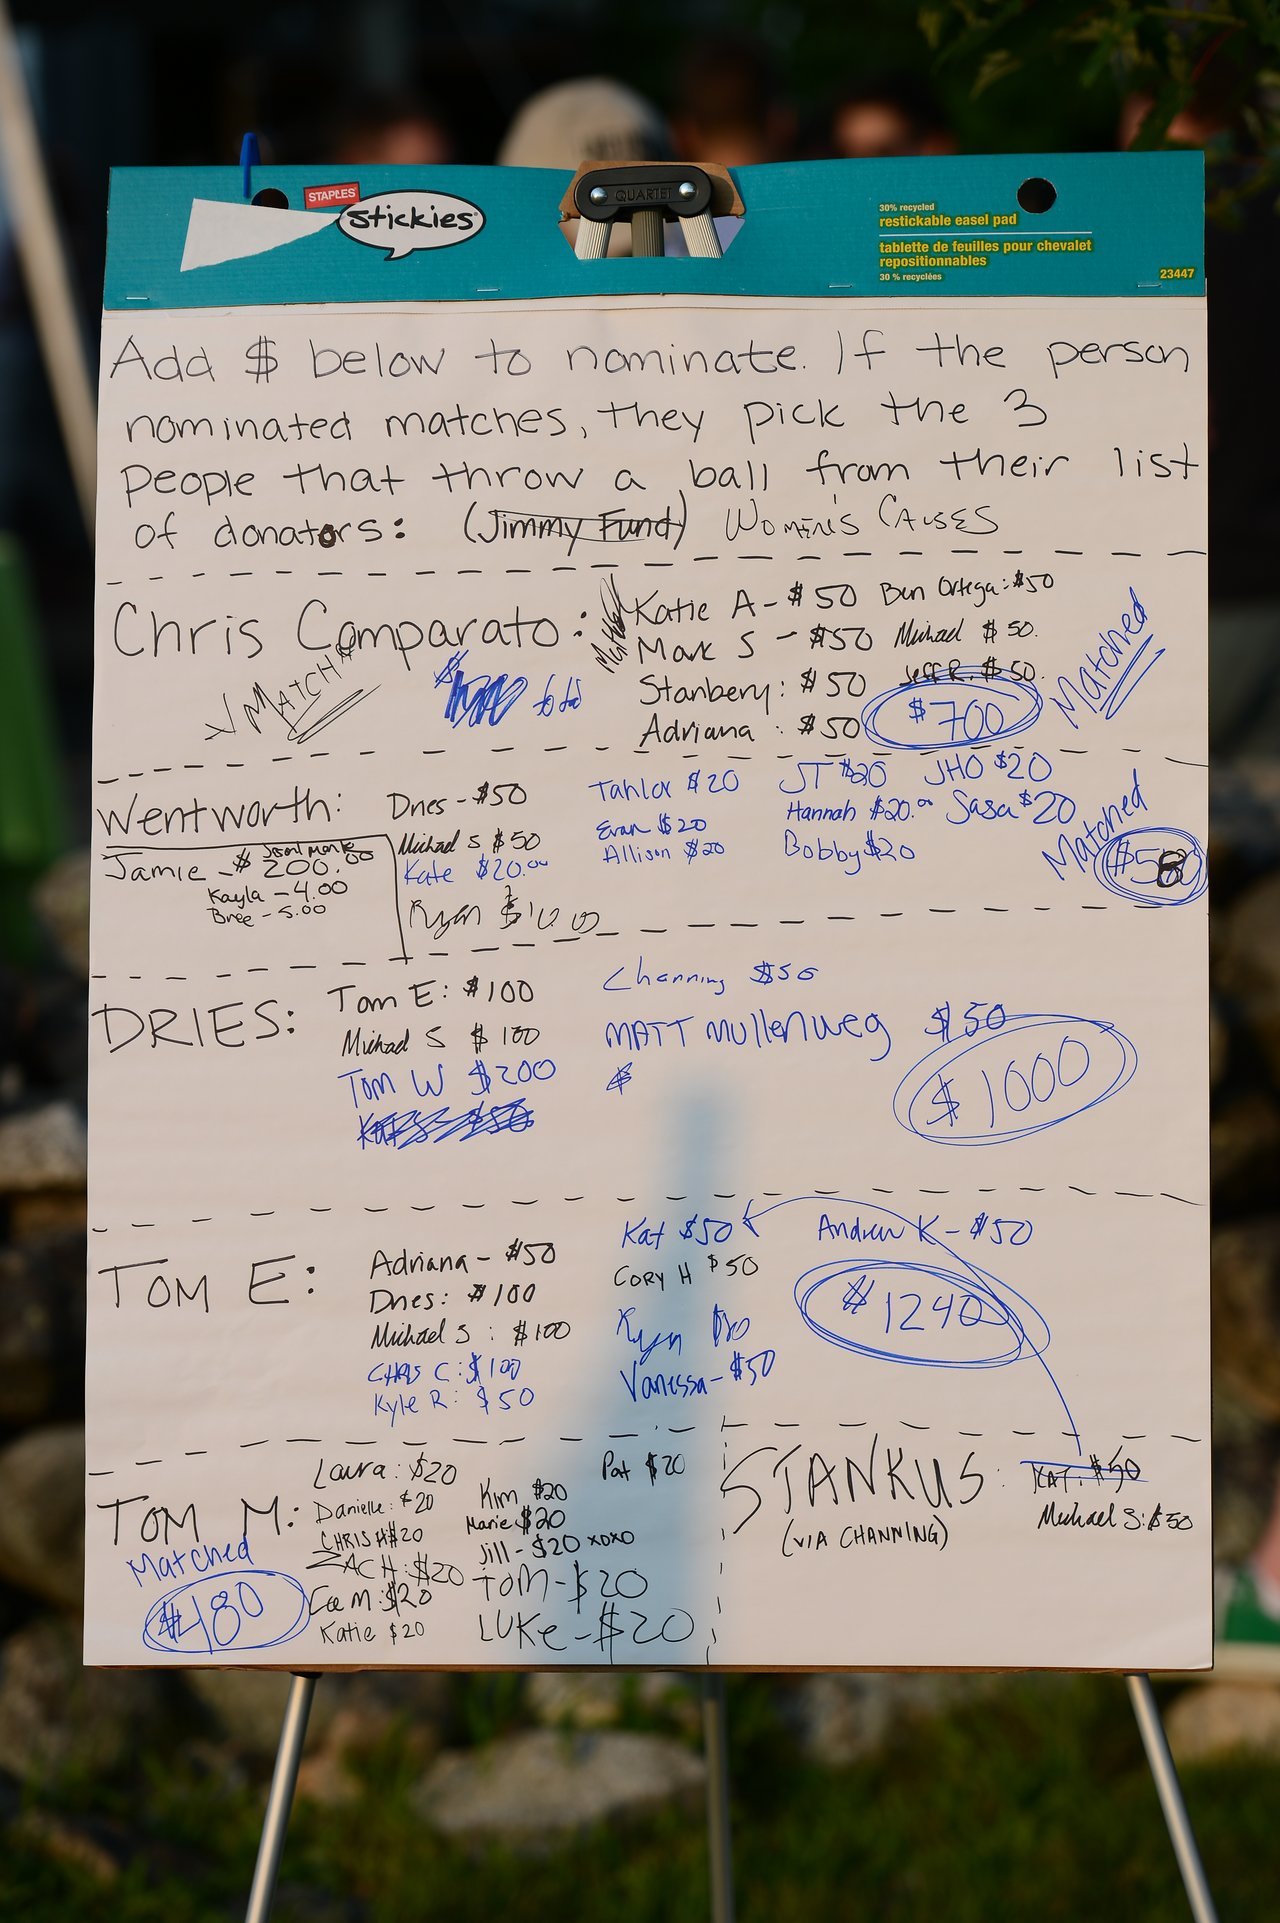 STAPLES
stickies
QUARTET
30% recycled
restickable easel pad
tablette de feuilles pour chevalet
repositionnables
30 % recyclées
23447
Add $ below to nominate. If the person
nominated matches, they pick the 3
people that throw a ball from their list
of donators: (Jimmy Fund) WOMEN'S CAUSES
Chris Comparato:
√ MATCH
Matched
Katie A - $50
Mark S - $50
Stanbery: $50
Adriana : $50
Ben Ortega: $50
Michael $50.
Jeff R. $50.
$700
Matched
Wentworth:
Jamie - $200.00
Kayla - 4.00
Bree - 5.00
Dries - $50
Michael S $50
Kate $20.00
Ryan
Tahlor $20
Evan $20
Allison $20
JT $20
Hannah $20.00
Bobby $20
JHO $20
Sasa $20
Matched
$580
DRIES:
Tom E: $100
Michael S $100
Tom W $200
Channing $50
MATT Mullenweg $50
$
$1000
TOM E:
Adriana - $50
Dries: $100
Michael S : $100
CHRIS C: $100
Kyle R: $50
Kat $50
CORY H $50
Ryan
Vanessa - $50
Andrew K - $50
$1240
TOM M:
Matched
$480
Laura: $20
Danielle: $20
CHRIS H $20
ZACH: $20
M: $20
Katie $20
Kim $20
Marie $20
Jill - $20 xoxo
TOM - $20
LUKE - $20
Pat $20
STANKUS:
(VIA CHANNING)
KAT: $50
Michael S: $50